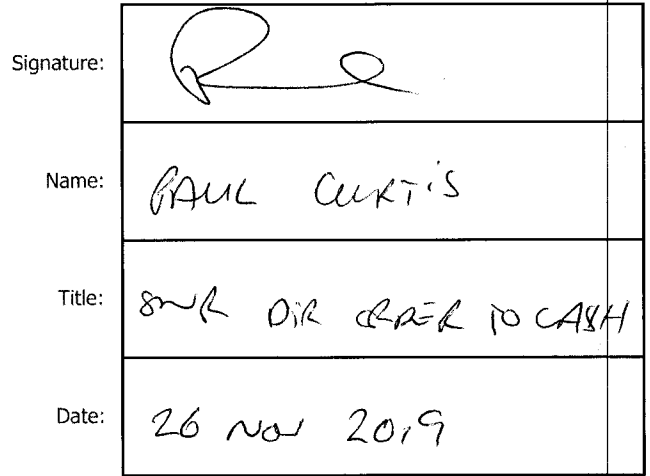 Signature:
Name: PAUL CURTIS
Title: SNR DIR ORDER TO CASH
Date: 26 NOV 2019